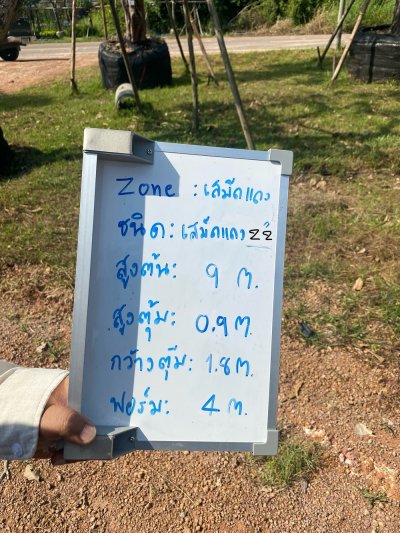 Zone : เสม็ดแดง
ชนิด: เสม็ดแดง 22
สูงต้น: 9 ม.
สูงตุ้ม: 0.9 ม.
กว้างตุ้ม: 1.8 ม.
ฟอร์ม: 4 ม.